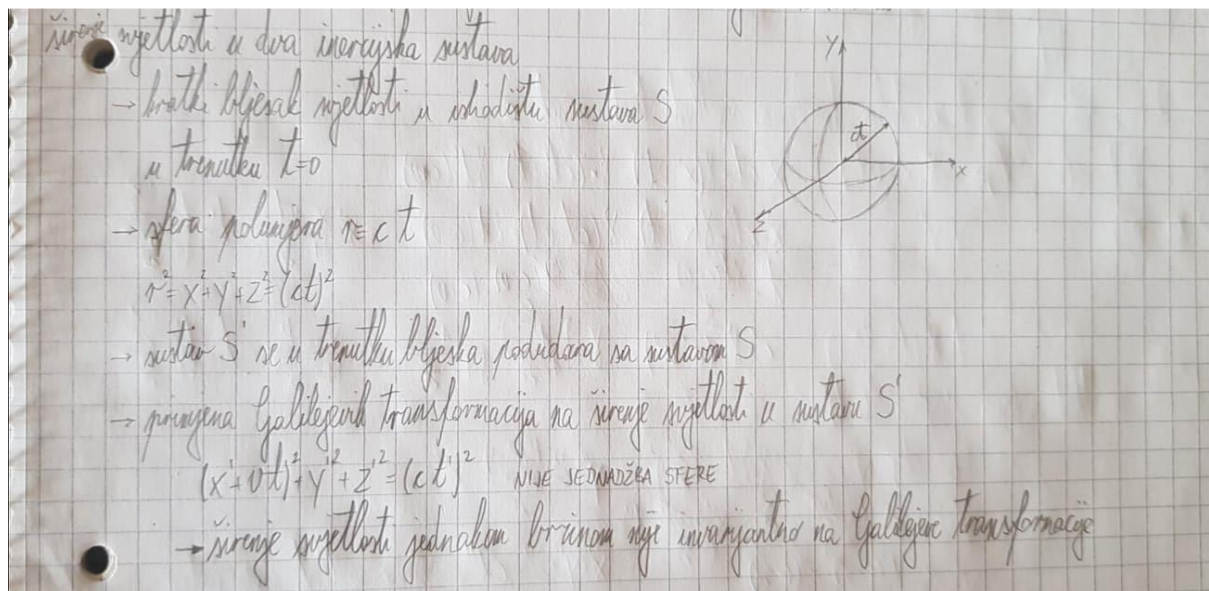 širenje svjetlosti u dva inercijska sustava
→ kratki bljesak svjetlosti u ishodištu sustava S
u trenutku t=0
→ sfera polumjera r=ct
r²=x²+y²+z²=(ct)²
→ sustav S' se u trenutku bljeska podudara sa sustavom S
→ primjena Galilejevih transformacija na širenje svjetlosti u sustavu S'
(x'+vt)²+y'²+z'²=(ct')² NIJE JEDNADŽBA SFERE
→ širenje svjetlosti jednakom brzinom nije invarijantno na Galilejeve transformacije
Y
ct
X
Z